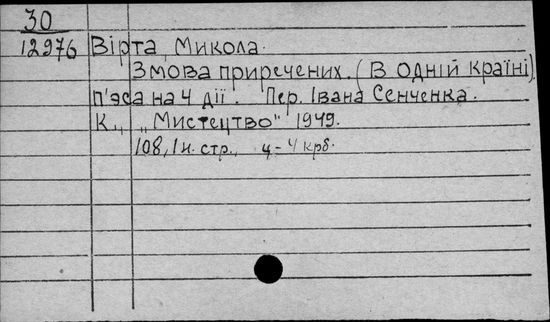 30
12976 Вірта, Микола.
Змова приречених. (В одній країні)
п'єса на 4 дії. Пер. Івана Сенченка.
К., „Мистецтво" 1949.
108, 1 н. стр., ц – 4 крб.